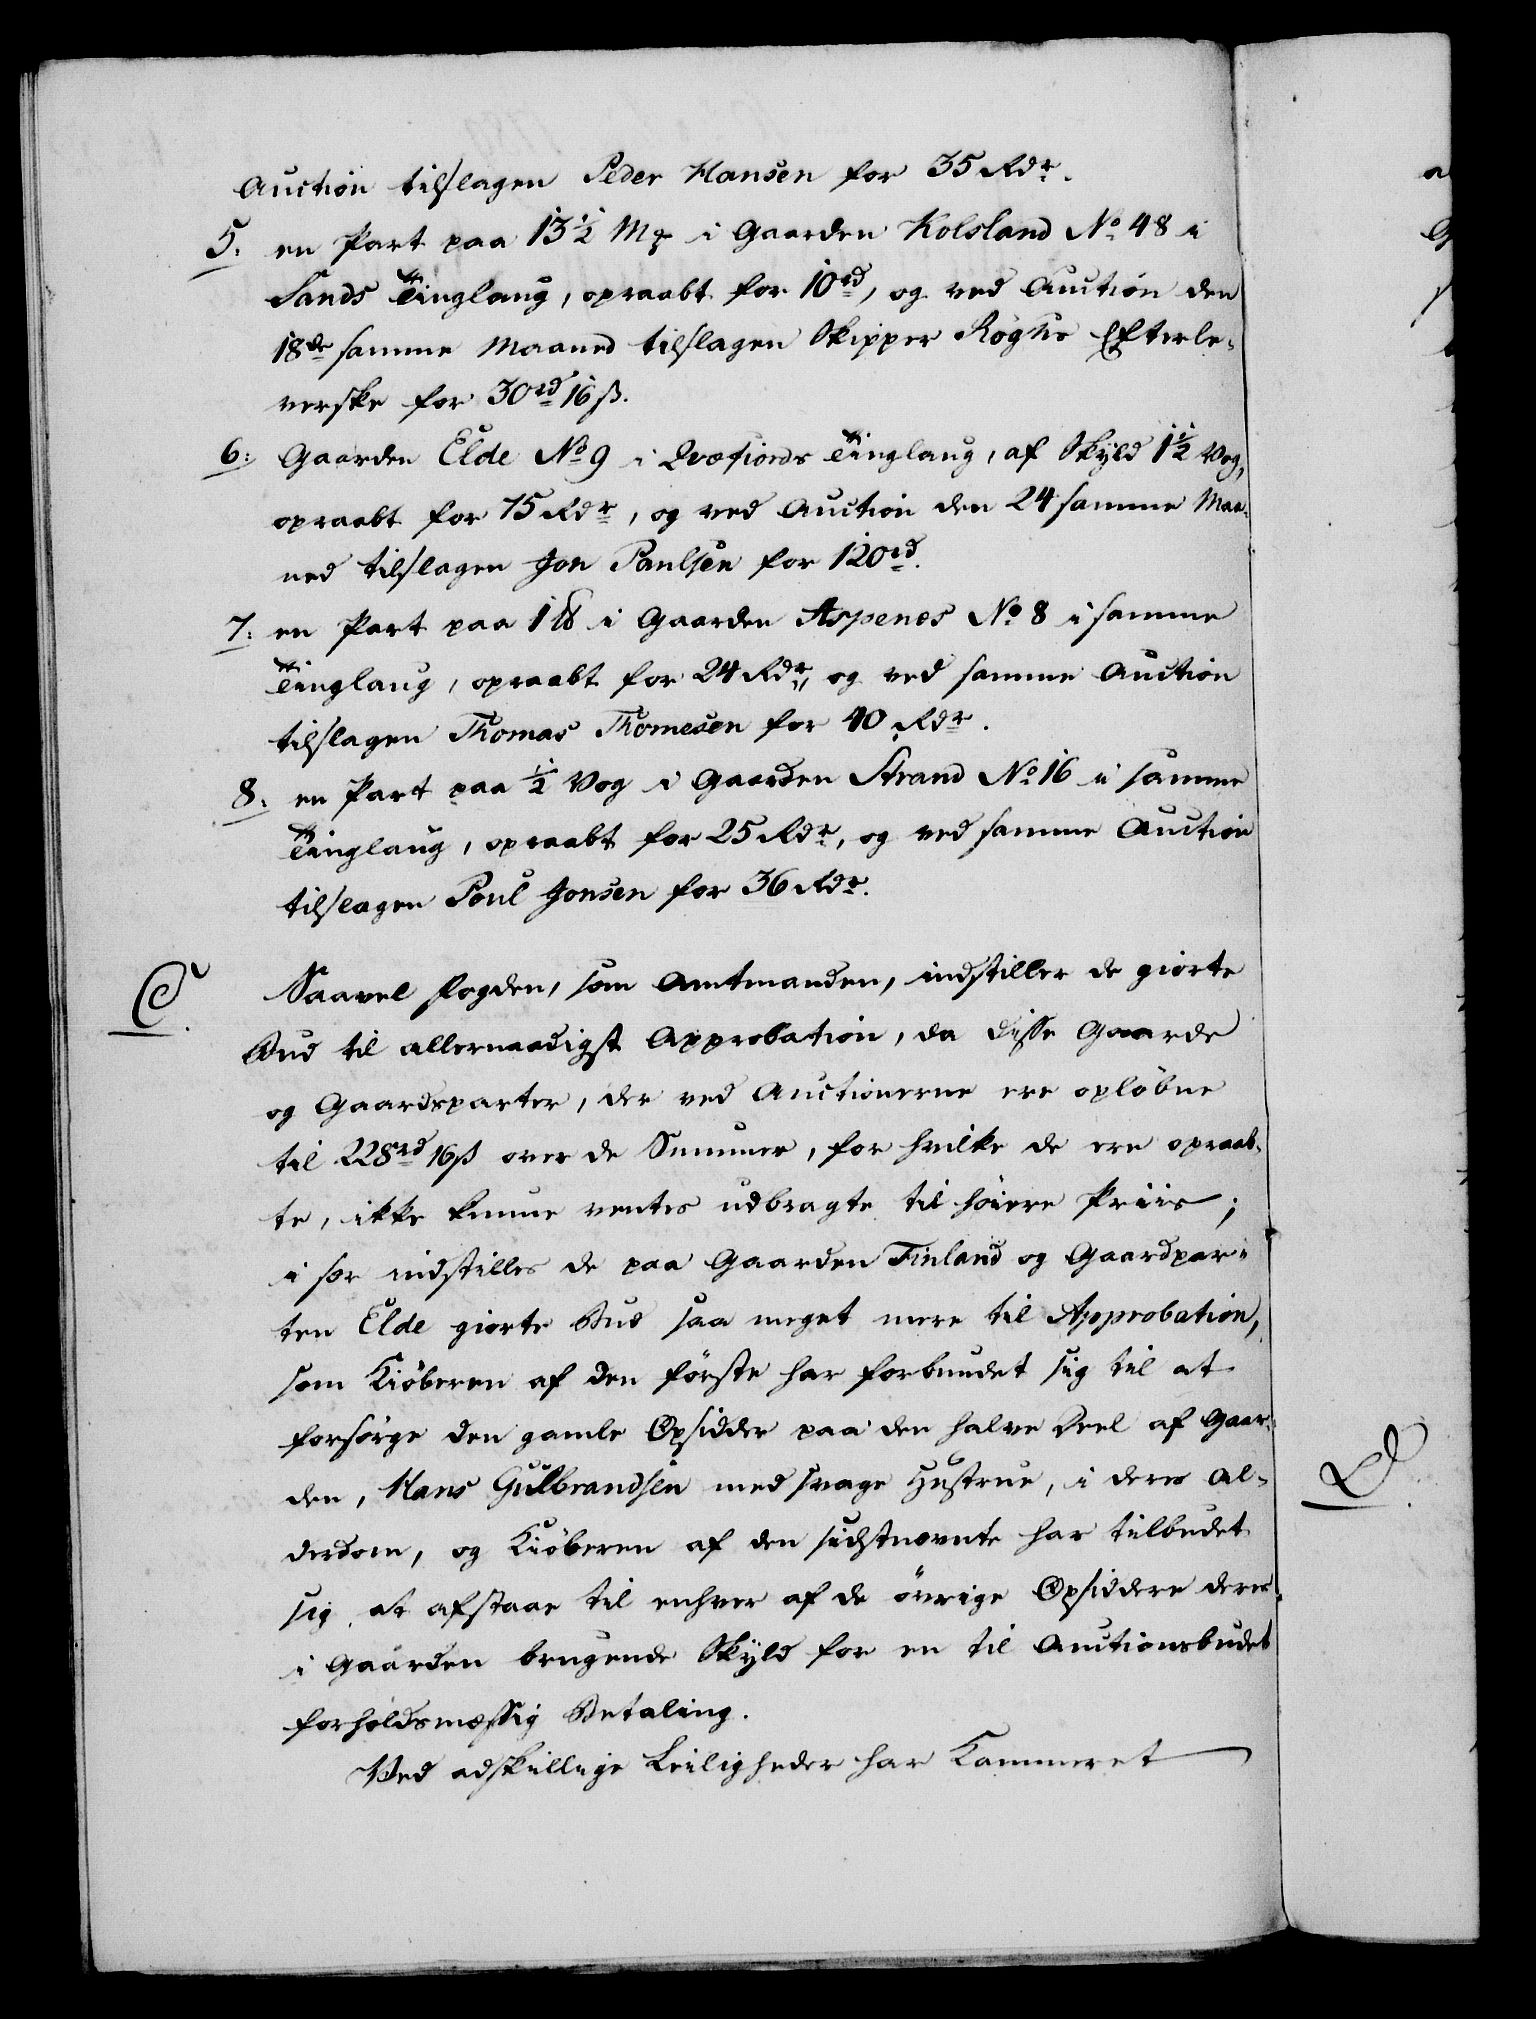 Auction tilslagen Peder Hansen for 35 Rdr.
5. en Part paa 13½ Mk i Gaarden Kolsland No 48 i
Sands Tinglaug, opraabt for 10rd, og ved Auction den
18de samme Maaned tilslagen Skipper Røghs Efterle-
verske for 30rd 16 ß.
6. Gaarden Elde No 9 i Qvæfiords Tinglaug, af Skyld 1½ Vog,
opraabt for 75 Rdr, og ved Auction den 24 samme Maa-
ned tilslagen Jon Paulsen for 120rd.
7. en Part paa 1 ℔ i Gaarden Aspenes No 8 i samme
Tinglaug, opraabt for 24 Rdr, og ved samme Auction
tilslagen Thomas Thomesen for 40 Rdr.
8. en Part paa ½ Vog i Gaarden Strand No 16 i samme
Tinglaug, opraabt for 25 Rdr, og ved samme Auction
tilslagen Poul Jonsen for 36 Rdr.
C. Saavel Fogden, som Amtmanden, indstiller de giorte
Bud til allernaadigst Approbation, da disse Gaarde
og Gaardsparter, der ved Auctionerne ere opløbne
til 228rd 16 ß over de Summer, for hvilke de ere opraab-
te, ikke kunne ventes udbragte til høiere Priis;
i sær indstilles de paa Gaarden Finland og Gaardpar-
ten Elde giorte Bud saa meget mere til Approbation,
som Kiøberen af den første har forbundet sig til at
forsørge den gamle Opsidder paa den halve Deel af Gaar-
den, Hans Gulbrandsen med svage Hustrue, i deres Al-
derdom, og Kiøberen af den sidstnævnte har tilbudet
sig at afstaae til enhver af de øvrige Opsiddere deres
i Gaarden brugende Skyld for en til Auctionsbudet
forholdsmæssig Betaling.
Ved adskillige Leiligheder har Kammeret
D.